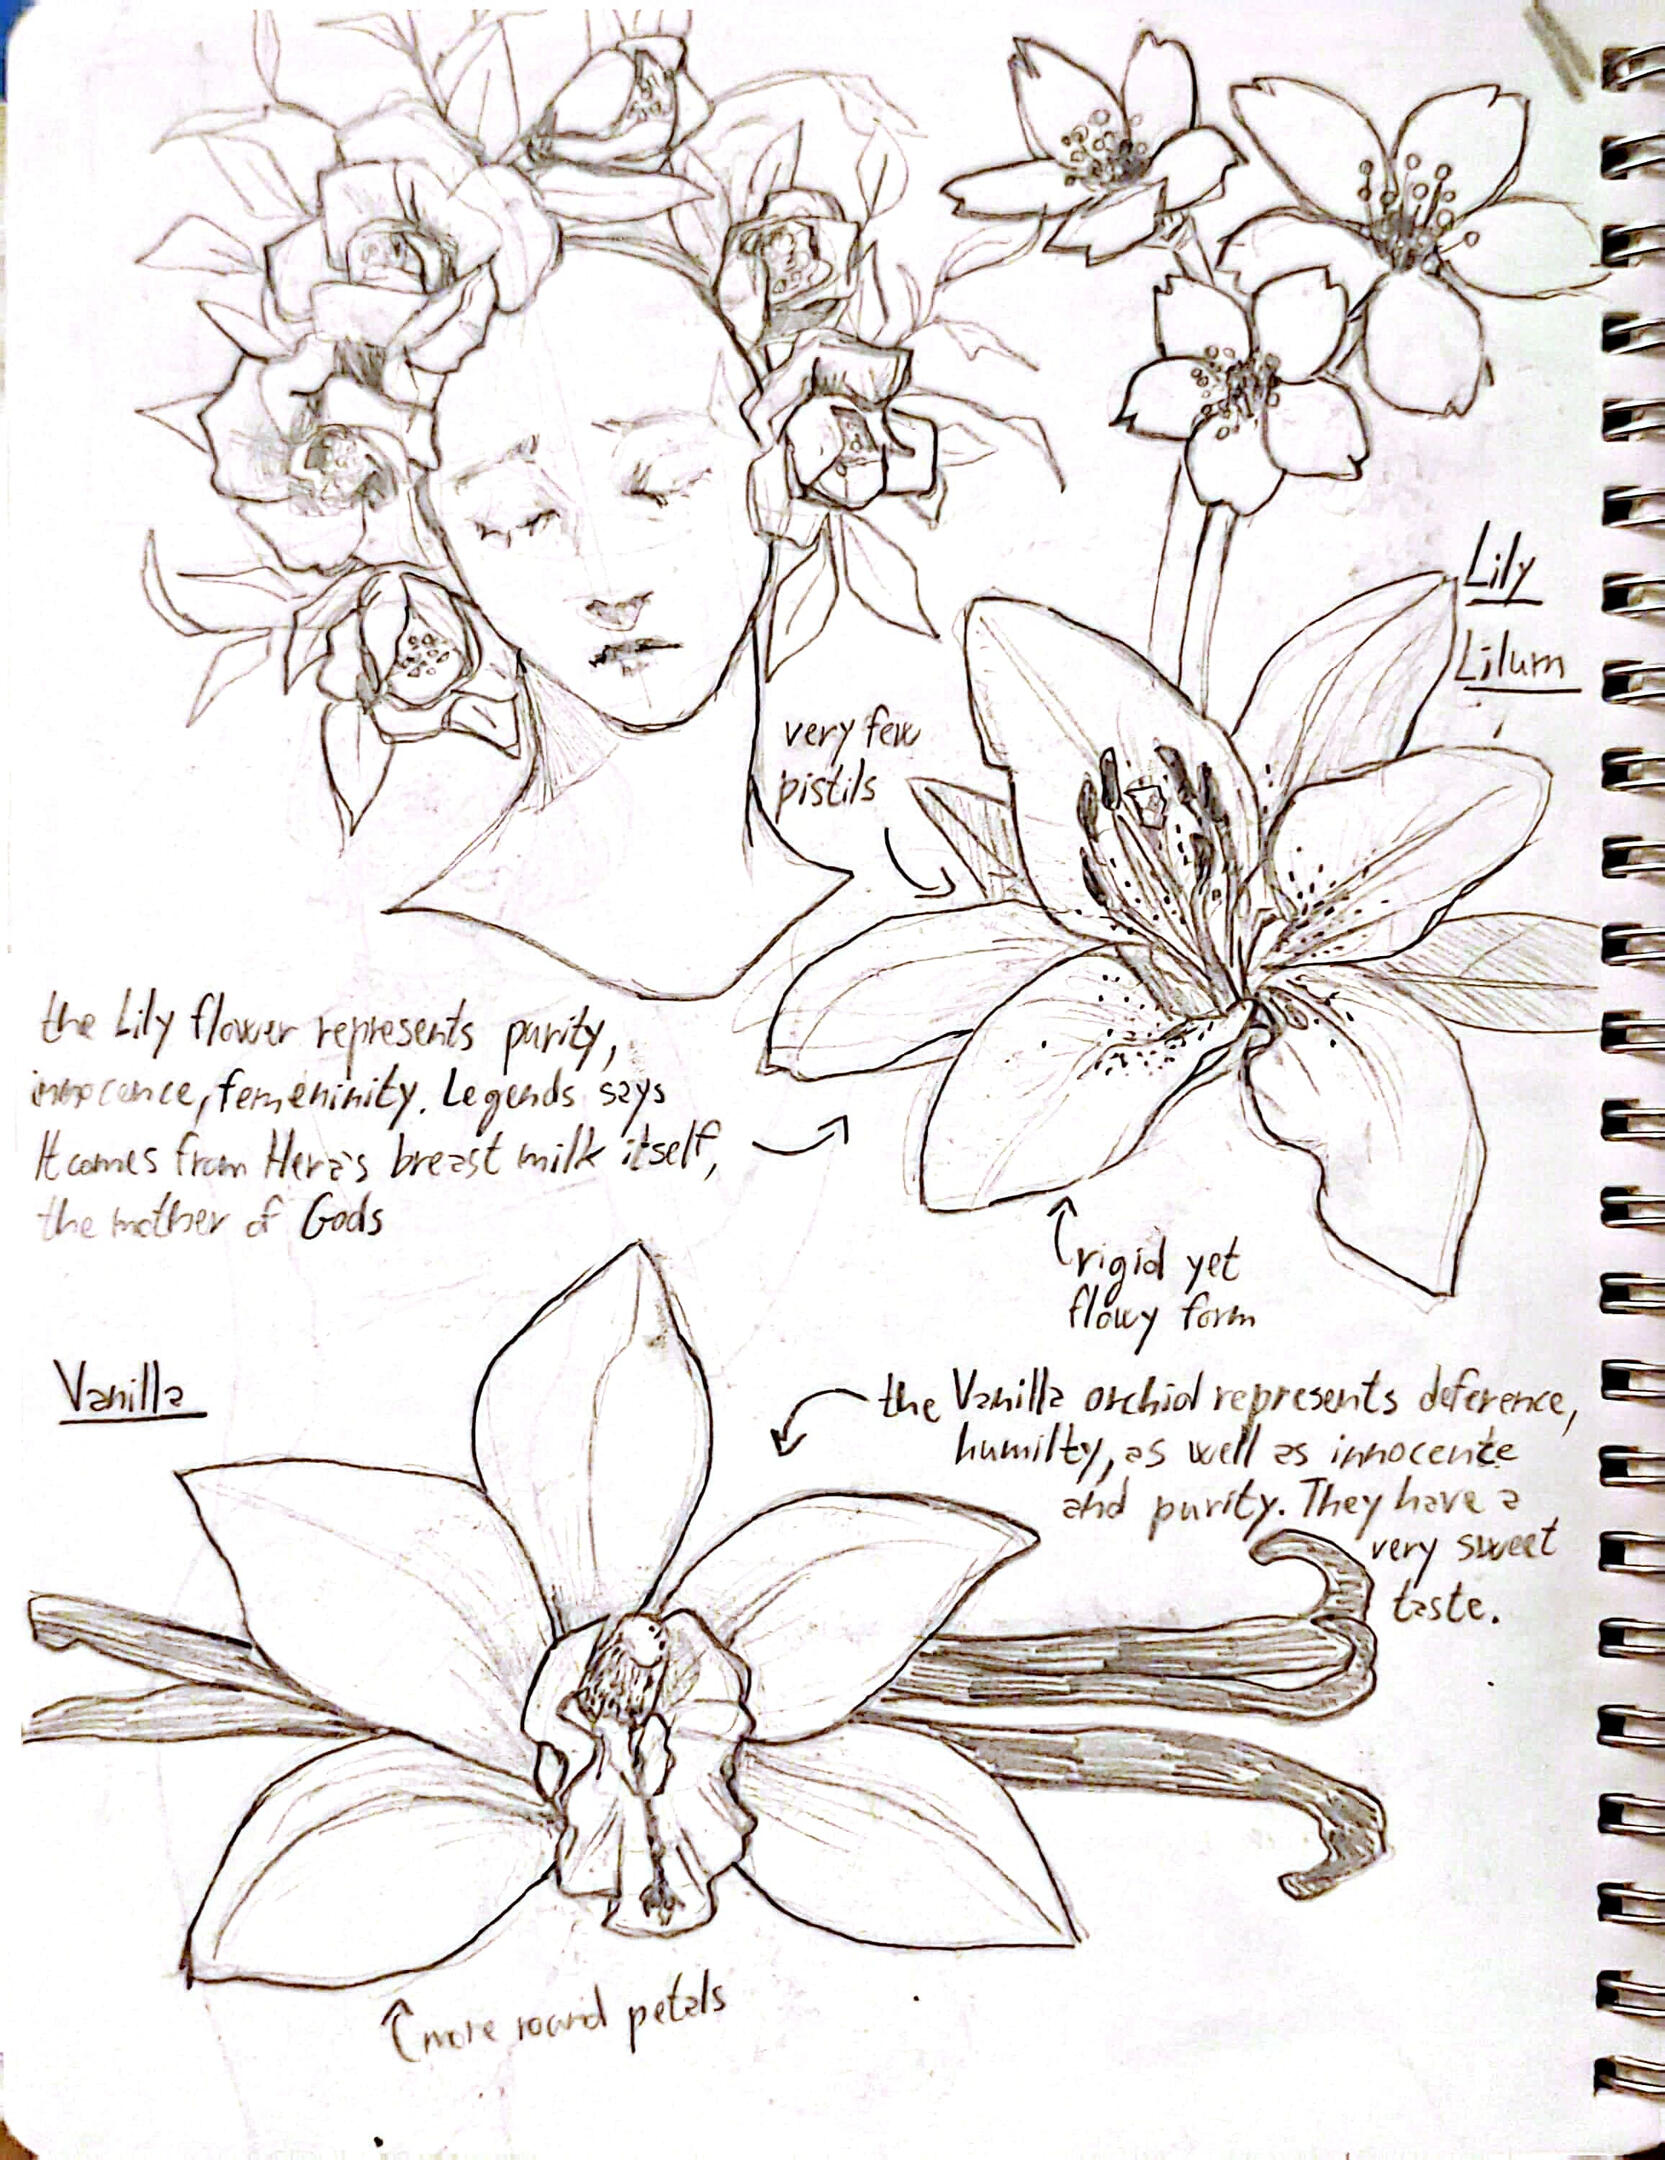 Lily
Lilum
very few
pistils
the Lily flower represents purity,
innocence, femeninity. Legends says
It comes from Hera's breast milk itself,
the mother of Gods
rigid yet
flowy form
Vanilla
the Vanilla orchid represents deference,
humilty, as well as innocence
and purity. They have a
very sweet
taste.
more round petals